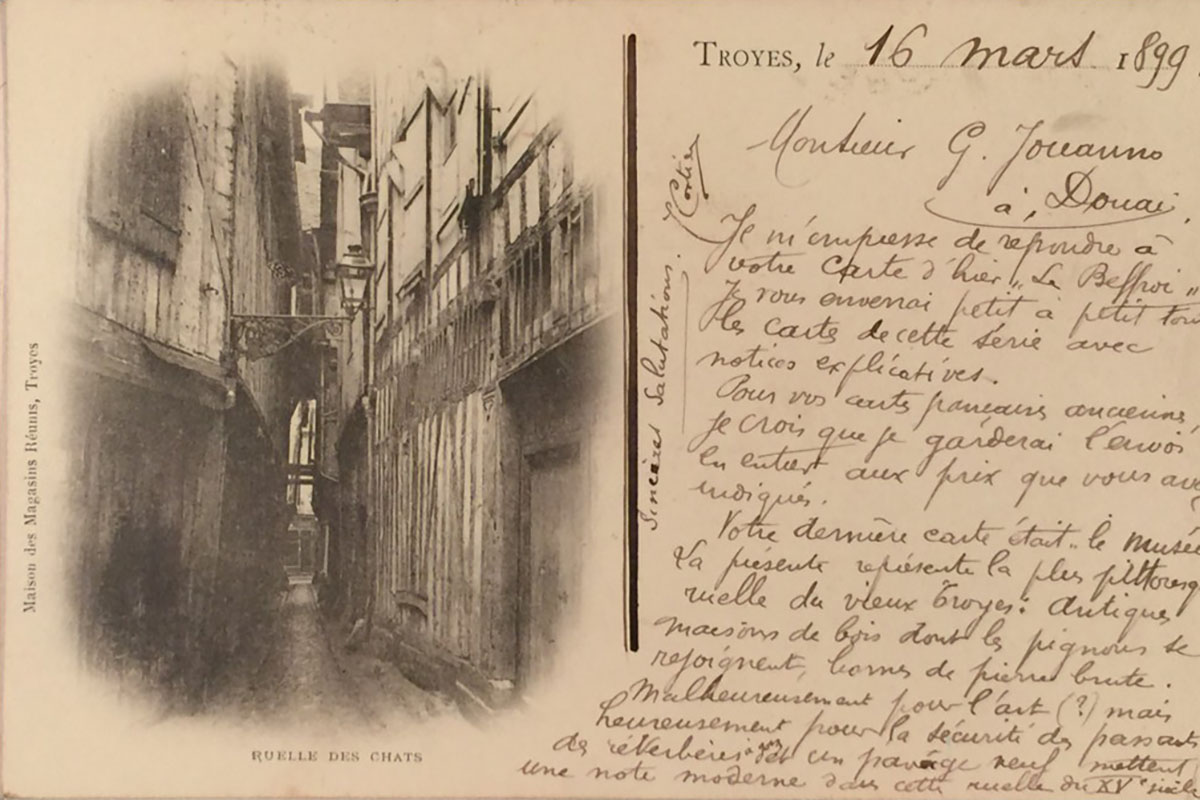 TROYES, le 16 mars 1899
Monsieur G. Jouanno
à Douai.
Je m'empresse de répondre à
votre Carte d'hier „ Le Beffroi "
Je vous enverrai petit à petit tou
les cartes de cette série avec
notices explicatives.
Pour vos cartes françaises anciennes
je crois que je garderai l'envoi
en entier aux prix que vous ave
indiqués.
Votre dernière carte était „ le musée
La présente représente la plus pittoresq
ruelle du vieux Troyes : Antiques
maisons de bois dont les pignons se
rejoignent, bornes de pierre brute.
Malheureusement pour l'art (?) mais
heureusement pour la sécurité des passants
des réverbères à gaz et un pavage neuf mettent
une note moderne dans cette ruelle du XVe siècle
Sincères Salutations.
Maison des Magasins Réunis, Troyes
RUELLE DES CHATS